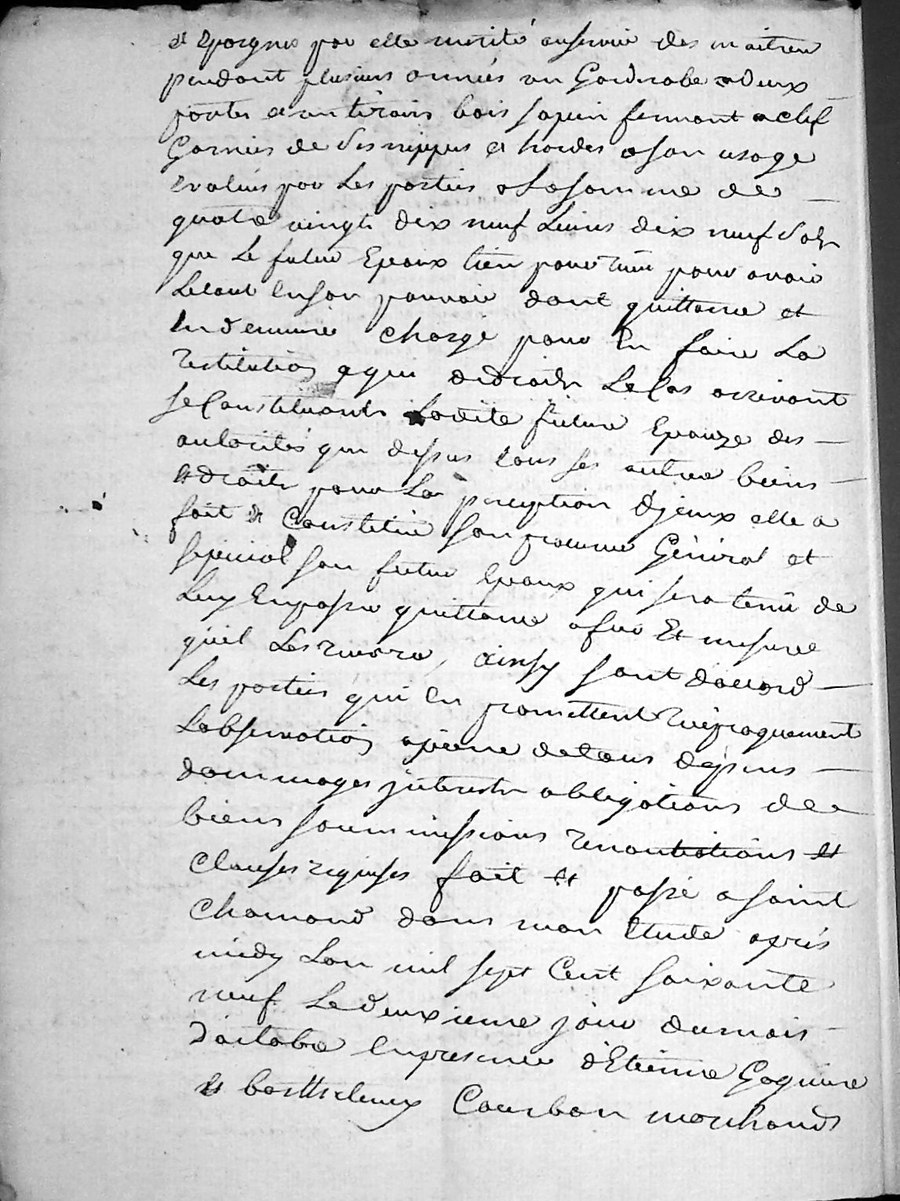 et Epargnes par elle merité auservice des maitres
pendant plusieurs années un Garderobe a deux
portes et un tiroirs bois sapin fermant a clef
Garnies de ses nippes et hardes a son usage
evalués par les parties a la somme de
quatre vingts dix neuf Livres dix neuf sols
que le futur Epoux tien pour reçu pour avoir
Letout En son pouvoir dont quittance et
Indemnire chargé pour En faire La
restitution a qui de droits Le Cas arrivant
se Constituants Ladite future Epouze des
autorités que dessus tous ses autres biens
et droits pour La perception d'Jceux elle a
fait et Constitue son procureur Général et
special son futur Epoux qui sera tenu de
Luy En passer quittance afur Et mesure
quil Les recevra, ainsy sont d'accord
Les parties qui En promettent reciproquement
Lobservation a peine de tous depens
dommages jnterests obligations de
biens soummissions renontiations et
clauses requises fait et passé a saint
Chamond dans mon Etude aprés
midy Lan mil sept Cent soixante
neuf Le deuxieme jour dumois
d'octobre En presence d'Etienne Goguiere
et barthelemy Courbon marchands